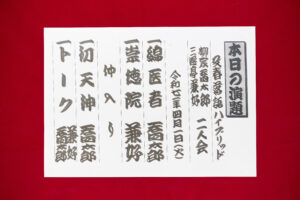 本日の演題
文春落語ハイブリッド
柳家喬太郎
三遊亭兼好
二人会
令和七年四月一日(火)
一綿医者 喬太郎
一崇徳院 兼好
仲入り
一初天神 喬太郎
一トーク 兼好 喬太郎